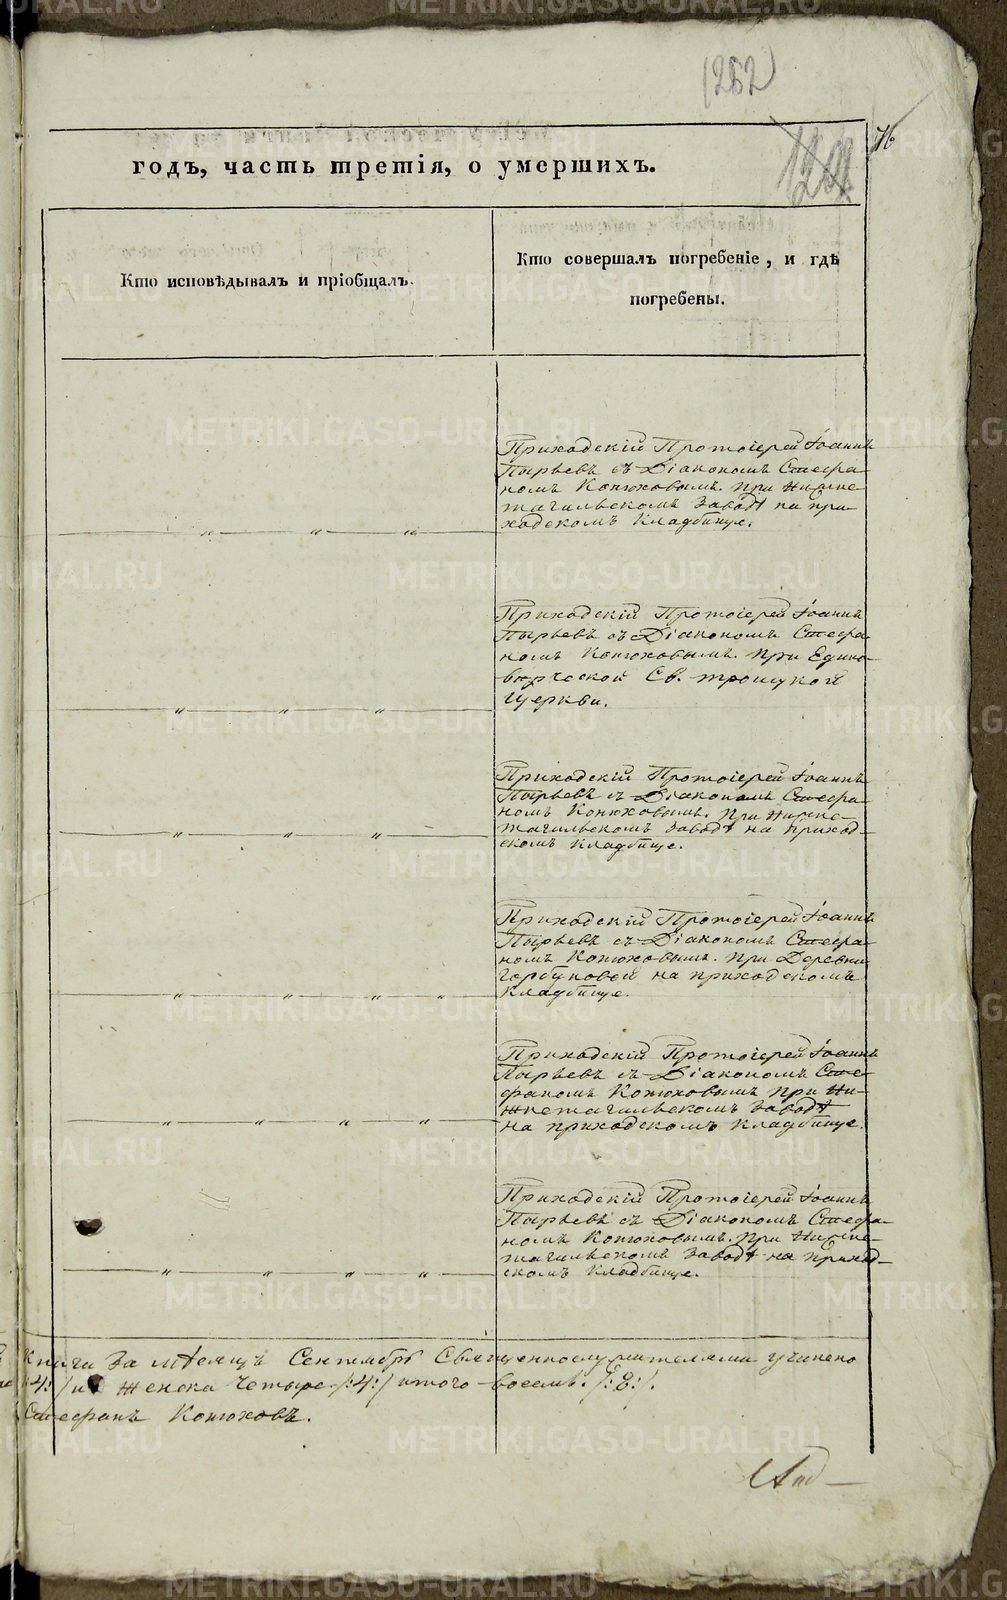 (262)
годъ, часть третія, о умершихъ.
Кто исповѣдывалъ и пріобщалъ.
Кто совершалъ погребеніе, и гдѣ
погребены.
Приходскій Протоіерей Іоаннъ
Пырьевъ съ Діакономъ Стефа-
номъ Конюховымъ. При Нижне-
тагильскомъ Заводѣ на при-
ходскомъ Кладбище.
Приходскій Протоіерей Іоаннъ
Пырьевъ съ Діакономъ Стефа-
номъ Конюховымъ. При Едино-
вѣрческой Св. троицкой
Церкви.
Приходскій Протоіерей Іоаннъ
Пырьевъ съ Діакономъ Стефа-
номъ Конюховымъ. При Нижне-
тагильскомъ Заводѣ на приход-
скомъ кладбище.
Приходскій Протоіерей Іоаннъ
Пырьевъ съ Діакономъ Стефа-
номъ Конюховымъ. При Деревни
Горбуновой на приходскомъ
Кладбище.
Приходскій Протоіерей Іоаннъ
Пырьевъ съ Діакономъ Сте-
фаномъ Конюховымъ при Ни-
жнетагильскомъ Заводѣ
на приходскомъ кладбище.
Приходскій Протоіерей Іоаннъ
Пырьевъ съ Діакономъ Стефа-
номъ Конюховымъ. При Нижне-
тагильскомъ Заводѣ на Приход-
скомъ Кладбище.
Книги За мѣсяцъ Сентябрь Священнослужителями учинено
:4:/ и женска Четыре /:4:/ итого восемь. /:8:/.
Стефанъ Конюховъ.
METRIKI.GASO-URAL.RU